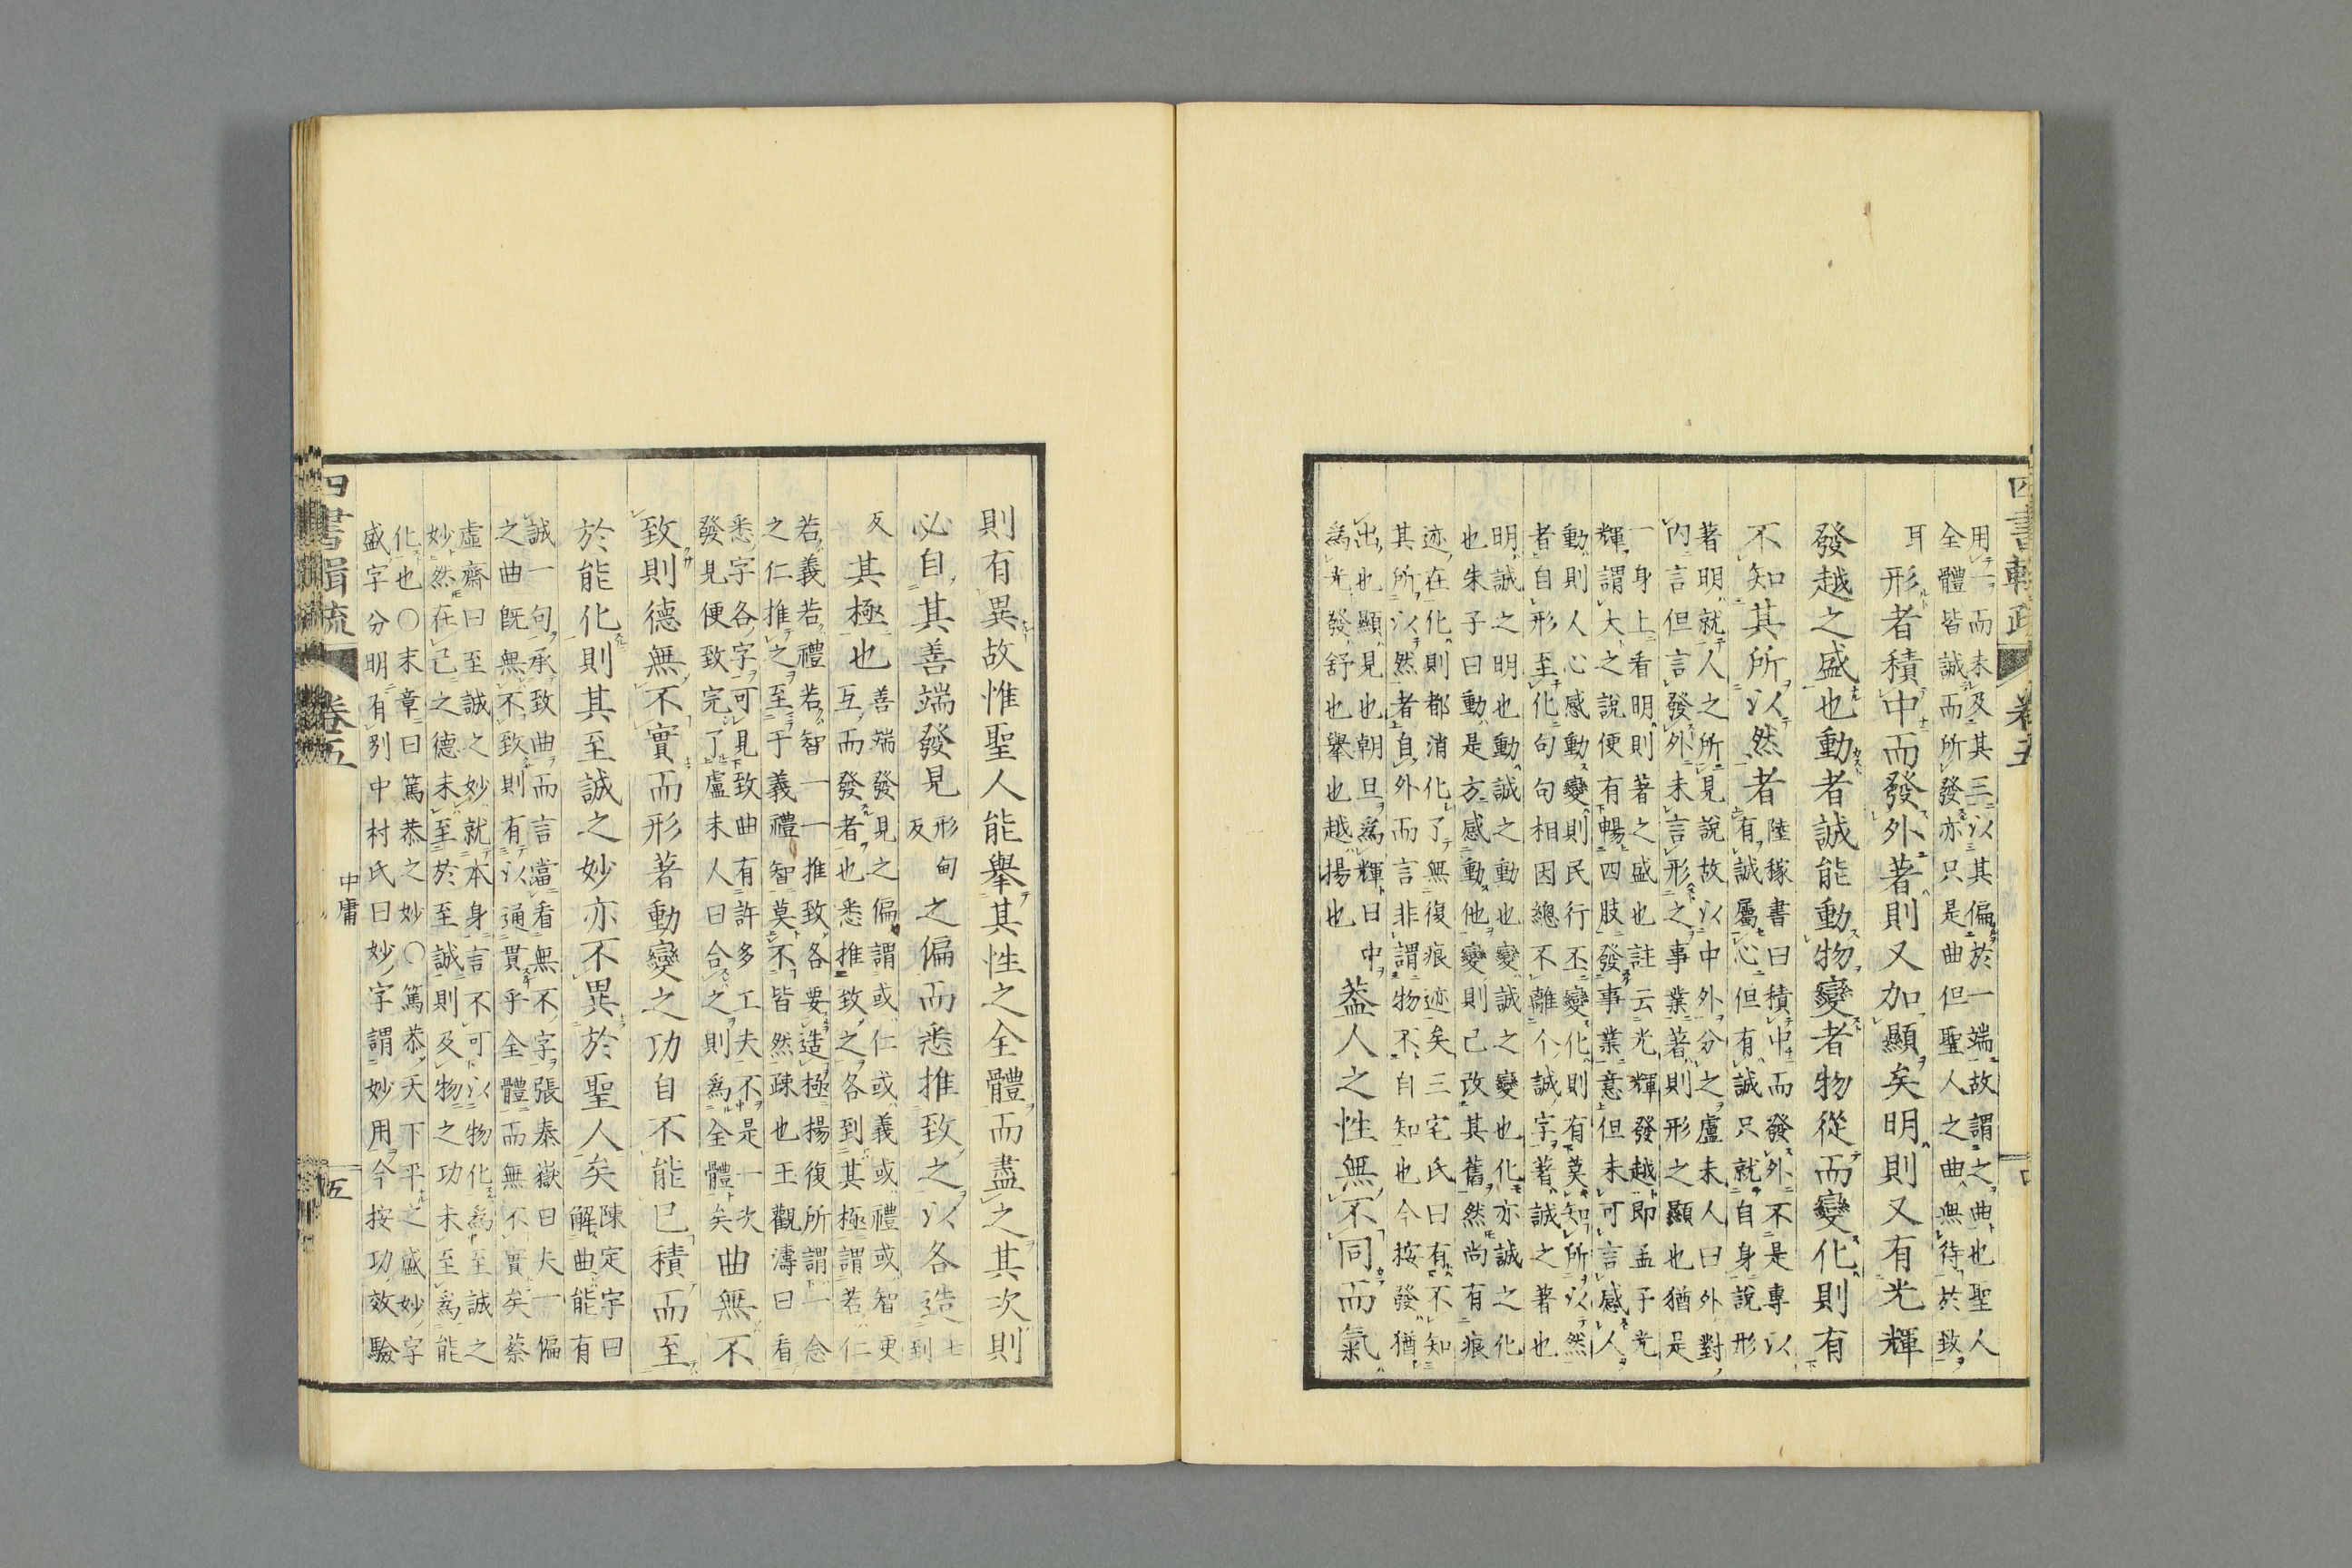 用一而未及其三以其偏於一端故謂之曲也聖人
全體皆誠而所發亦只是曲但聖人之曲無待於致
耳 形者積中而發外著則又加顯矣明則又有光輝
發越之盛也動者誠能動物變者物從而變化則有
不知其所以然者 陸稼書曰積中而發外不是專以
有誠屬心但有誠只就自身說形
著明就人之所見說故以中外分之盧未人曰外對
內言但言發外未言形之事業著則形之顯也猶是
一身上看明則著之盛也註云光輝發越即孟子光
輝謂大之說便有暢四肢發事業意但未可言感人
動則人心感動變則民行丕變化則有莫知所以然
者自形至化句句相因總不離个誠字著誠之著也
明誠之明也動誠之動也變誠之變也化亦誠之化
也朱子曰動是方感動他變則已改其舊然尚有痕
迹在化則都消化了無復痕迹矣三宅氏曰有不知
其所以然者自外而言非謂物不自知也今按發猶
出也顯見也朝旦為輝日中
為光發舒也舉也越揚也
蓋人之性無不同而氣
則有異故惟聖人能舉其性之全體而盡之其次則
必自其善端發見 形甸
反 之偏而悉推致之以各造 七
到
反 其極也 善端發見之偏謂或仁或義或禮或智更
互而發者也悉推致之各到其極謂若仁
若義若禮若智一一推致各要造極揚復所謂一念
之仁推之至于義禮智莫不皆然疎也王觀濤曰看
悉字各字可見致曲有許多工夫不是一次
發見便致完了盧未人曰合之則為全體矣
曲無不
致則德無不實而形著動變之功自不能已積而至
於能化則其至誠之妙亦不異於聖人矣 陳定宇曰
解曲能有
誠一句承致曲而言當看無不字張泰嶽曰夫一偏
之曲既無不致則有以通貫乎全體而無不實矣蔡
虛齋曰至誠之妙就本身言不可以物化為至誠之
妙然在己之德未至於至誠則及物之功未至為能
化也○末章曰篤恭之妙○篤恭天下平之盛妙字
盛字分明有別中村氏曰妙字謂妙用今按功效驗
四書輯疏 卷五 中庸 五